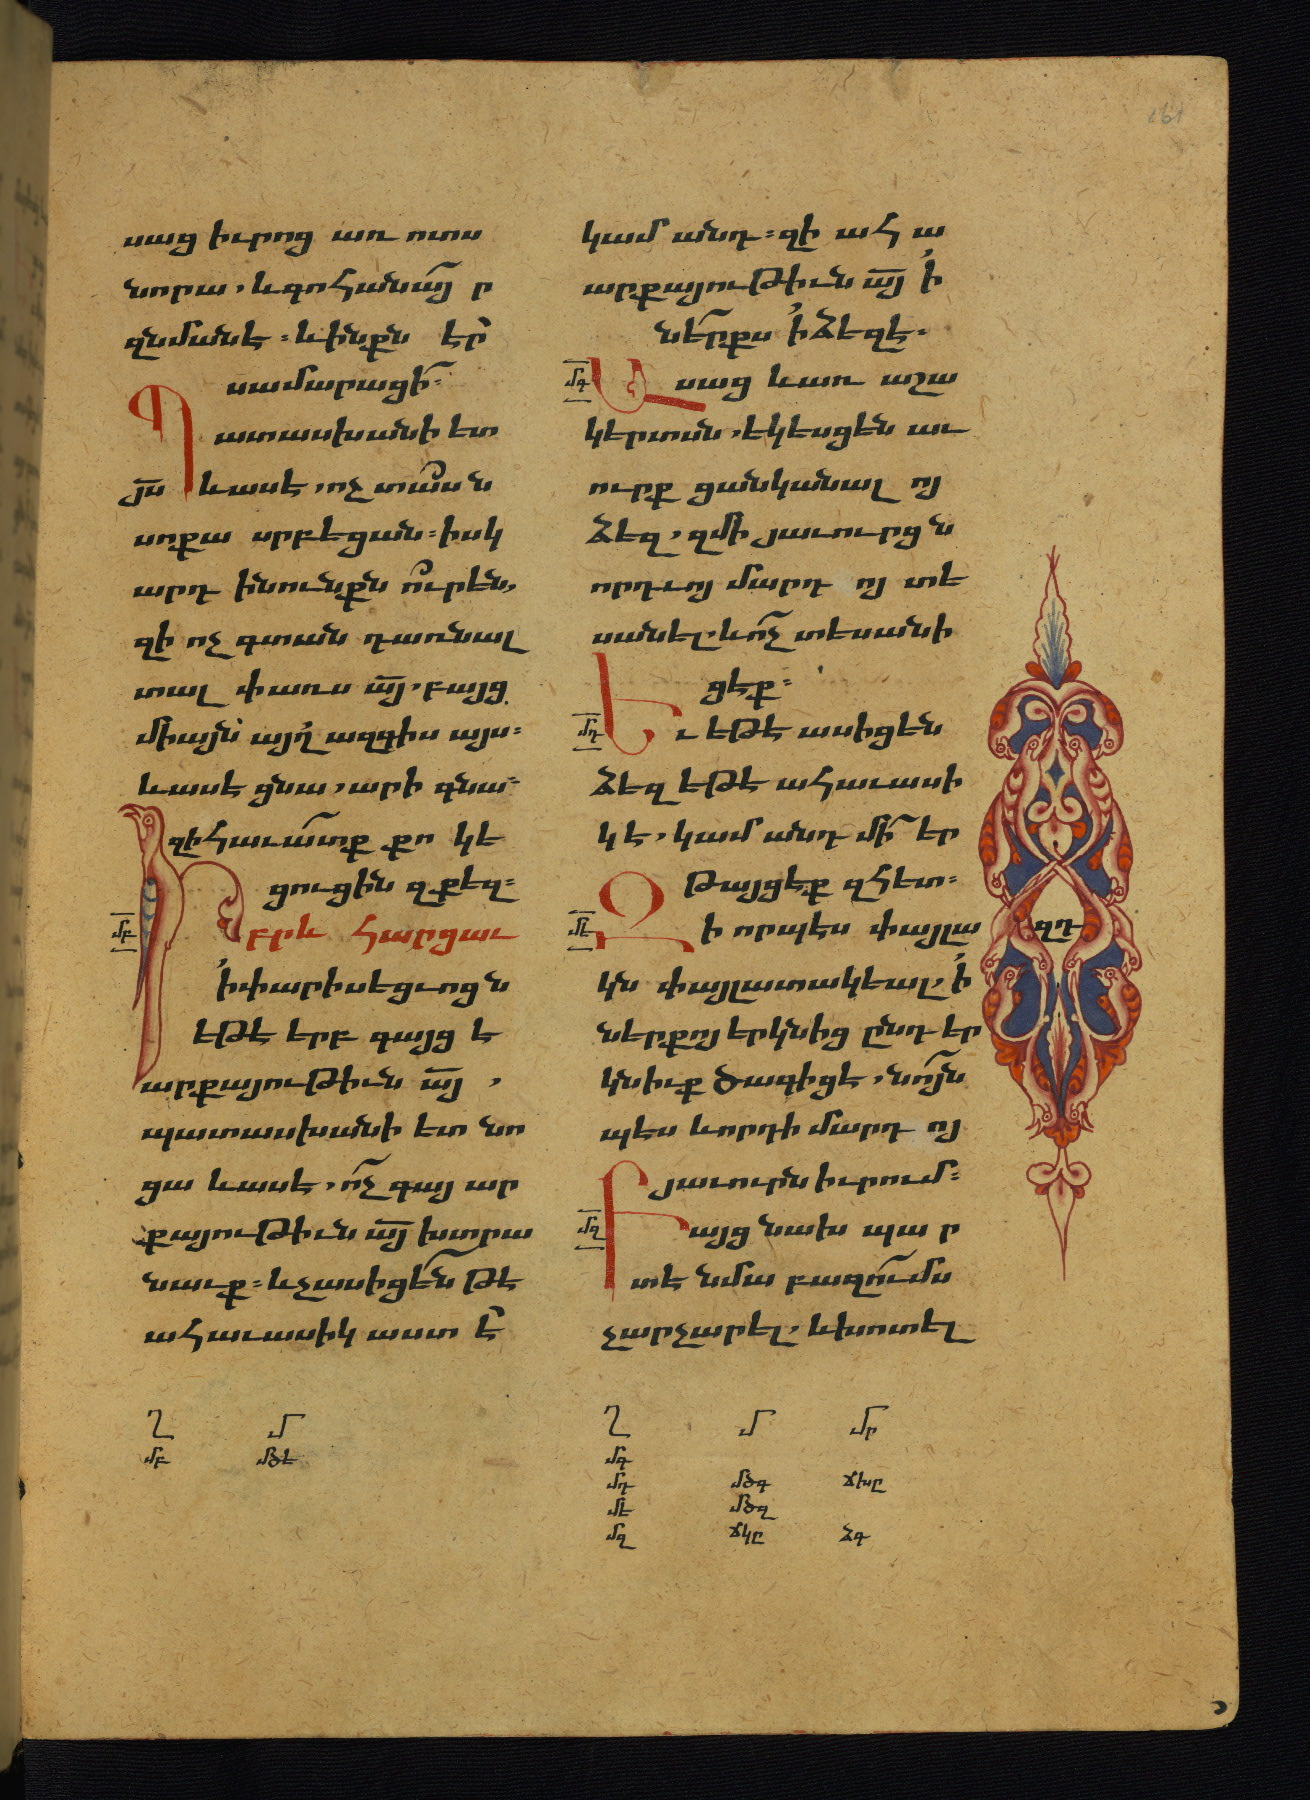 սաց իւրոց առ ոտս
նորա, և գոհանա՛յր
զնմանէ։ և ինքն էր
սամարացի։
Պատասխանի ետ
յս և ասէ, ոչ տասն
սոքա սրբեցան։ իսկ
արդ ինունքն ո՞ւր են,
զի ոչ գտան դառնալ
տալ փառս այ, բայց
միայն այղ ազգիս այս։
և ասէ ցնա, արի գնա՛
զի հաւատք քո կե
ցուցին զքեզ։
Իբրև հարցաւ
ի փարիսեցւոցն
եթէ երբ գայցէ
արքայութիւն այ,
պատասխանի ետ նո
ցա և ասէ, ոչ գայ ար
քայութիւն այ խտրա
նաւք։ և չասիցեն թէ
ահաւասիկ աստ է
կամ անդ։ զի ահա
արքայութիւն այ ի
ներքս ի ձէզ է։
մգ Ասաց և առ աշա
կերտսն, եկեսցեն աւ
ուրք ցանկանալ ոյ
ձեզ, զմի յաւուրցն
որդւոյ մարդոյ տե
սանել, և ոչ տեսանի
ցէք։
մդ Եւ եթէ ասիցեն
ձեզ եթէ ահաւասի
կ է, կամ անդ մի եր
թայցէք զհետ։
մե Զի որպէս փայլա
կն փայլատակեալ, ի
ներքոյ երկնից ընդ եր
կնիւք ծագիցէ, նոյն
պէս և որդի մարդոյ
յաւուրն իւրում։
մզ Բայց նախ պար
տէ նմա բազում ս
չարչարել, և խոտել
զդ
մբ
Ղ Մ
մբ մծե
Ղ Մ Մր
մգ
մդ մծգ ճխը
մե մծզ
մզ ճկը ձգ
161